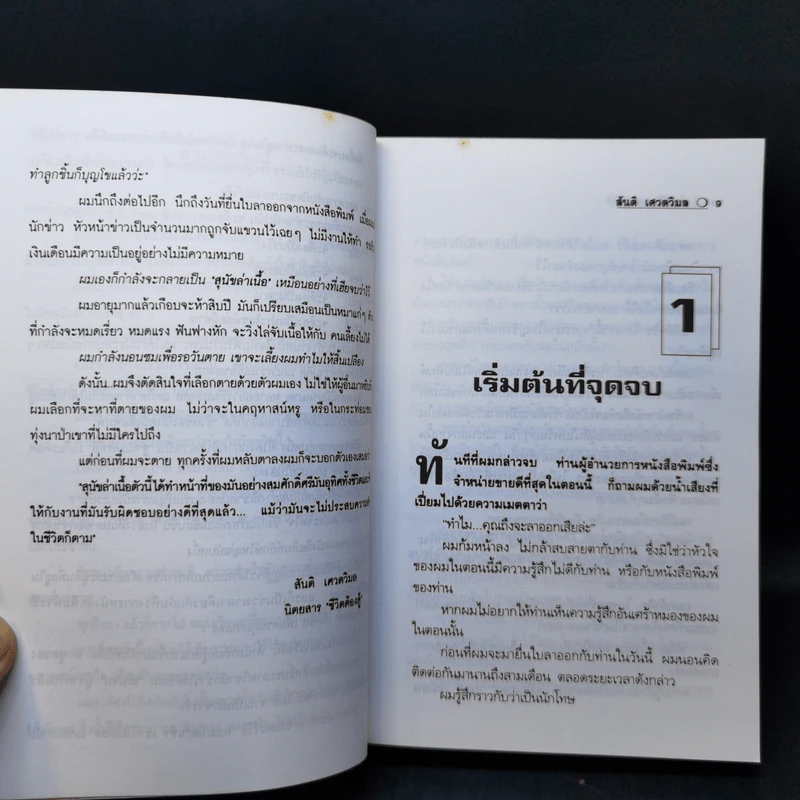 ทำลูกชิ้นก็บุญโขแล้วว่ะ"
ผมนึกถึงต่อไปอีก นึกถึงวันที่ยื่นใบลาออกจากหนังสือพิมพ์
นักข่าว หัวหน้าข่าวเป็นจำนวนมากถูกจับแขวนไว้เฉยๆ ไม่มีงานให้ทำ
เงินเดือนมีความเป็นอยู่อย่างไม่มีความหมาย
ผมเองก็กำลังจะกลายเป็น "สุนัขล่าเนื้อ" เหมือนอย่างที่เฮียจบว่าไว้
ผมอายุมากแล้วเกือบจะห้าสิบปี มันก็เปรียบเสมือนเป็นหมาแก่ๆ
ที่กำลังจะหมดเรี่ยว หมดแรง ฟันฟางหัก จะวิ่งไล่จับเนื้อให้กับ คนเลี้ยงไม่ได้
ผมกำลังนอนซมเพื่อรอวันตาย เขาจะเลี้ยงผมทำไมให้สิ้นเปลือง
ดังนั้น..ผมจึงตัดสินใจที่เลือกตายด้วยตัวผมเอง ไม่ใช่ให้ผู้อื่นมา
ผมเลือกที่จะหาที่ตายของผม ไม่ว่าจะในคฤหาสน์หรู หรือในกระท่อม
ทุ่งนาป่าเขาที่ไม่มีใครไปถึง
แต่ก่อนที่ผมจะตาย ทุกครั้งที่ผมหลับตาลงผมก็จะบอกตัวเองเสมอ
"สุนัขล่าเนื้อตัวนี้ได้ทำหน้าที่ของมันอย่างสมศักดิ์ศรีมันอุทิศทั้งชีวิต
ให้กับงานที่มันรับผิดชอบอย่างดีที่สุดแล้ว... แม้ว่ามันจะไม่ประสบความ
ในชีวิตก็ตาม"
สันติ เศวตวิมล
นิตยสาร "ชีวิตต้องสู้"
สันติ เศวตวิมล ❍ ๑
1
เริ่มต้นที่จุดจบ
ทันทีที่ผมกล่าวจบ ท่านผู้อำนวยการหนังสือพิมพ์ซึ่ง
จำหน่ายขายดีที่สุดในตอนนี้ ก็ถามผมด้วยน้ำเสียงที่
เปี่ยมไปด้วยความเมตตาว่า
"ทำไม...คุณถึงจะลาออกเสียล่ะ"
ผมก้มหน้าลง ไม่กล้าสบสายตากับท่าน ซึ่งมิใช่ว่าหัวใจ
ของผมในตอนนี้มีความรู้สึกไม่ดีกับท่าน หรือกับหนังสือพิมพ์
ของท่าน
หากผมไม่อยากให้ท่านเห็นความรู้สึกอันเศร้าหมองของผม
ในตอนนั้น
ก่อนที่ผมจะมายื่นใบลาออกกับท่านในวันนี้ ผมนอนคิด
ติดต่อกันมานานถึงสามเดือน ตลอดระยะเวลาดังกล่าว
ผมรู้สึกราวกับว่าเป็นนักโทษ